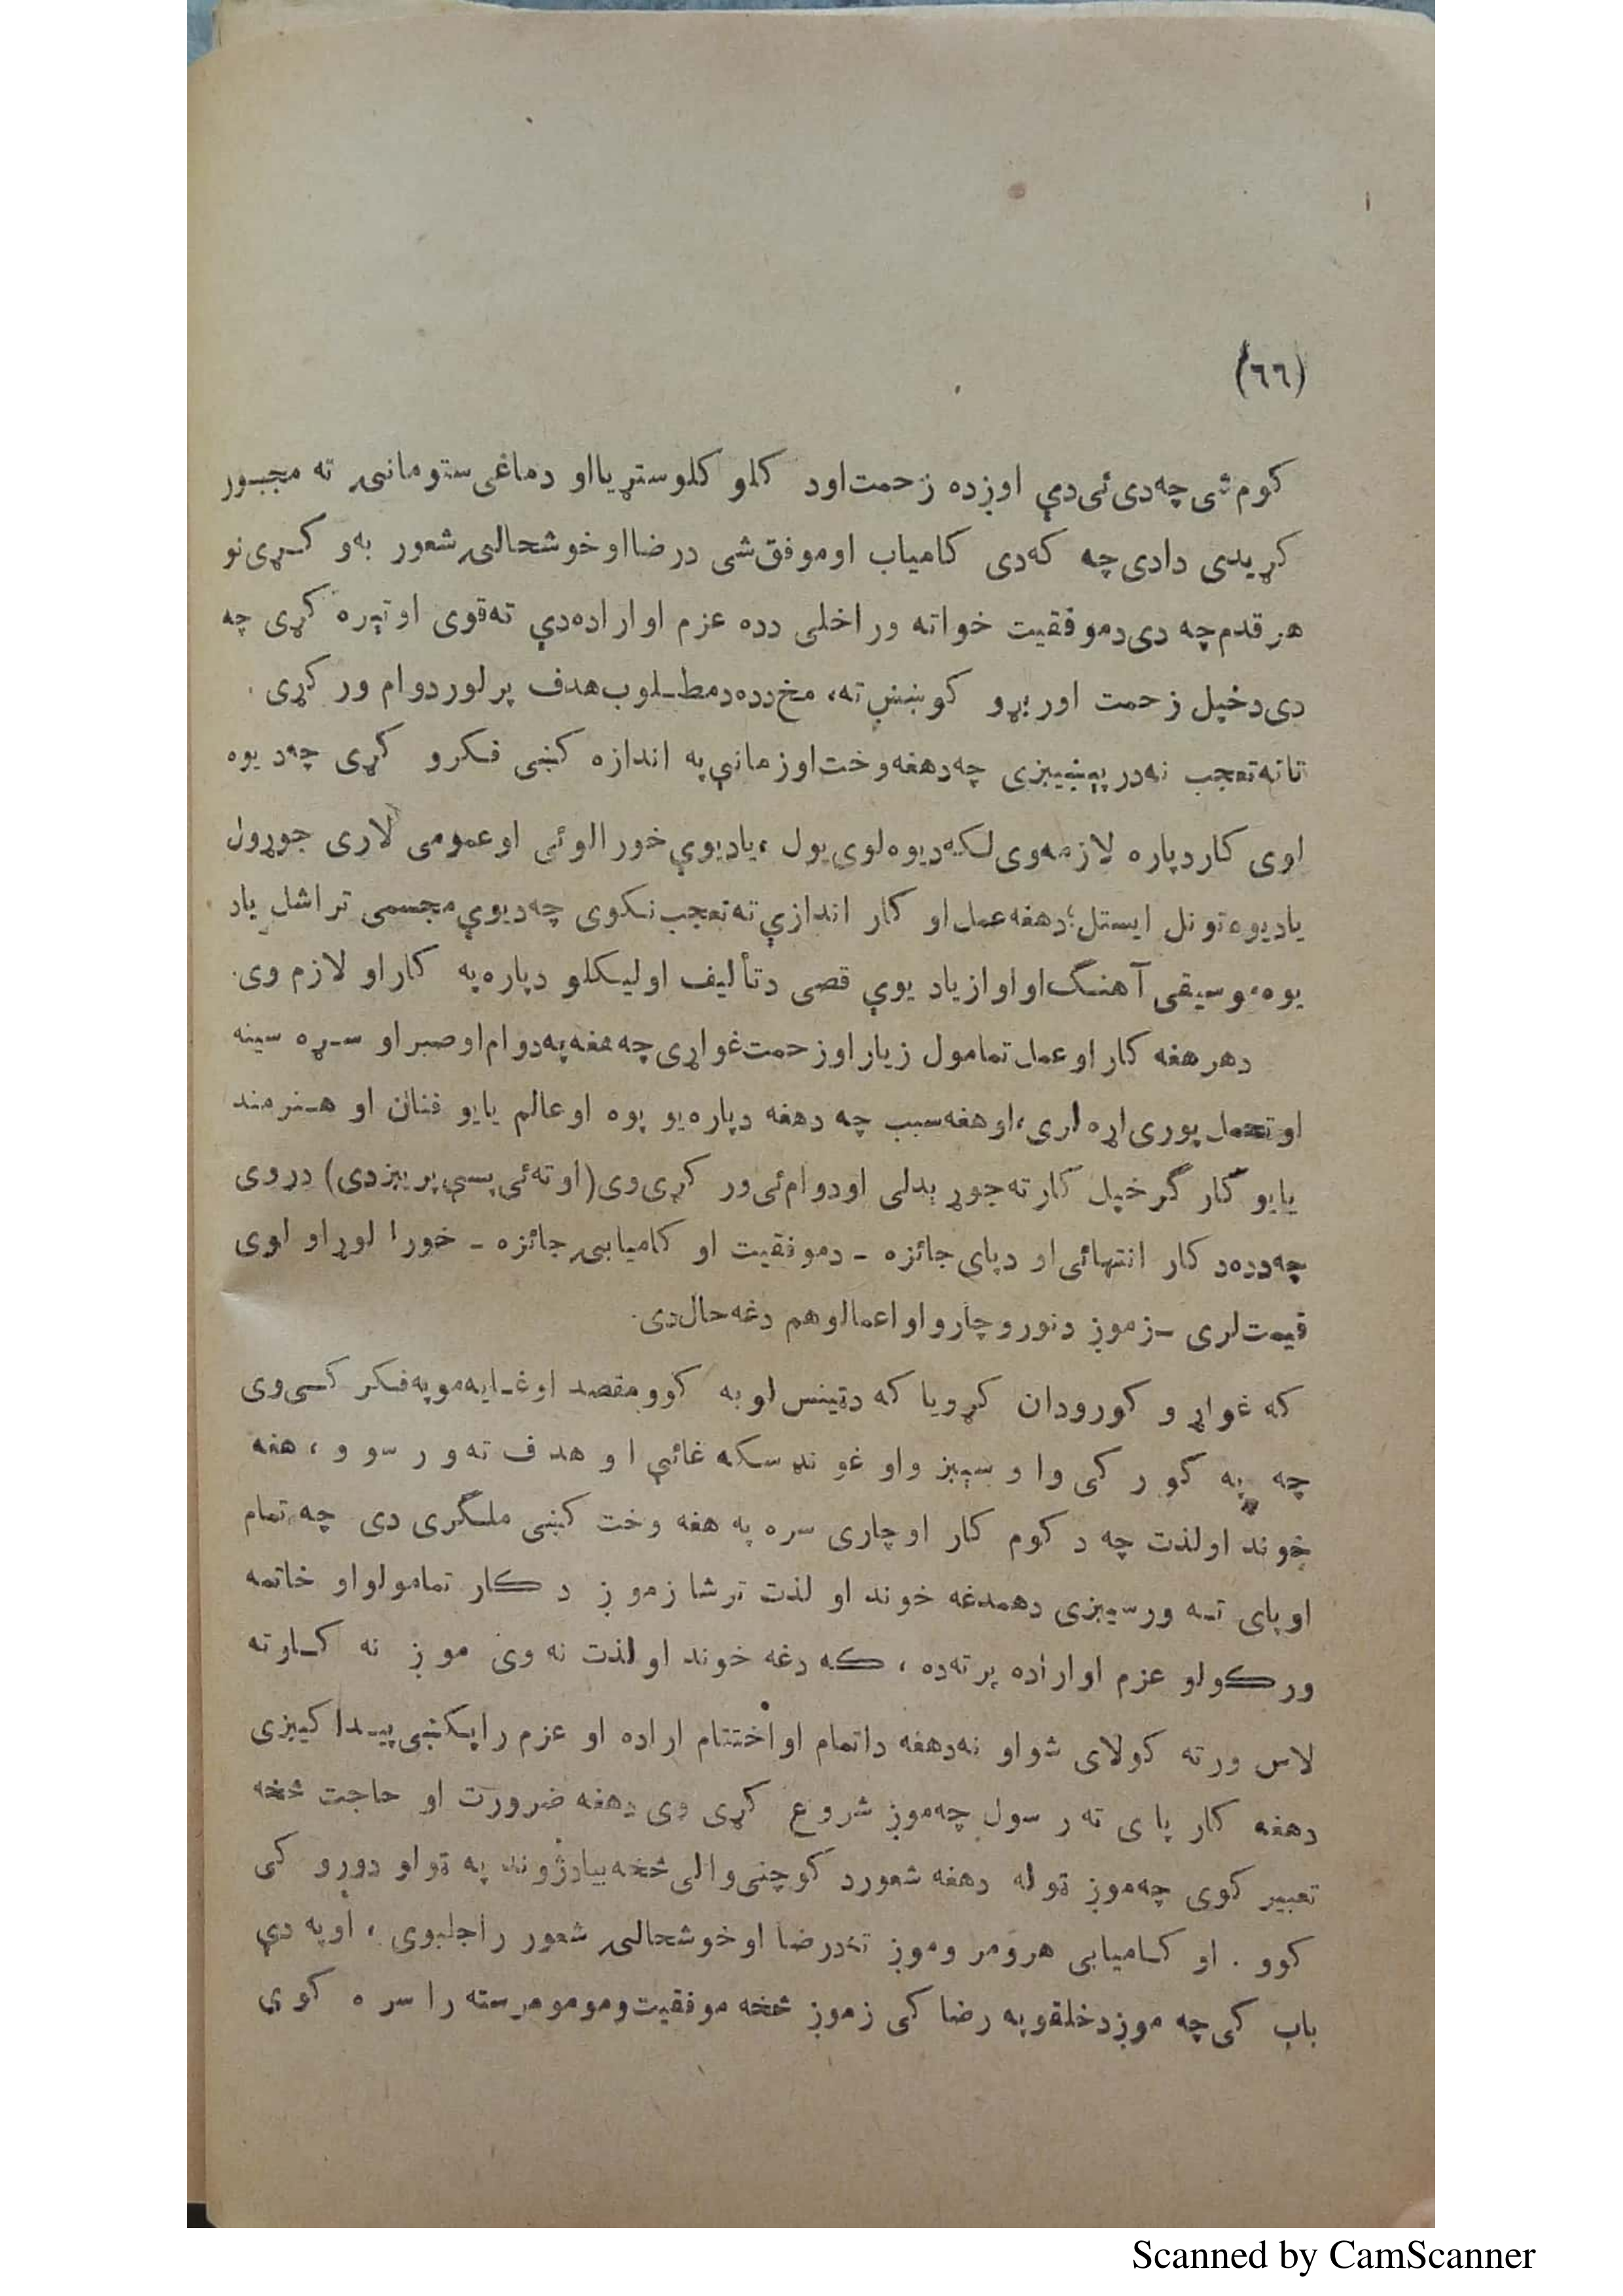 (٦٦)
کوم شی چه دی ئی دې اوږده زحمت اود کلو کلو ستړیا او دماغی ستومانۍ ته مجبور
کړیدی دادی چه که دی کامیاب اوموفق شی درضا اوخوشحالۍ شعور به و کړی نو
هر قدم چه دی دموفقیت خواته ور اخلی دده عزم او اراده دې ته قوی او تېره کړی چه
دی دخپل زحمت اوربړو کوښښ ته، مخ دده دمطلوب هدف پر لور دوام ور کړی .
تاته تعجب نه در پېښیږی چه دهغه وخت اوزمانې په اندازه کښی فکرو کړی چه دیوه
لوی کار دپاره لازمه وی لکه دیوه لوی پول ، یا دیوې خورا لوئی اوعمومی لاری جوړول
یادیوه تونل ایستل؛ دهغه عمل او کار اندازې ته تعجب نکوی چه دیوې مجسمی تراشل یاد
یوه موسیقی آهنگ او اواز یاد یوې قصی دتألیف اولیکلو دپاره په کار او لازم وی.
دهر هغه کار اوعمل تمامول زیار اوزحمت غواړی چه هغه په دوام اوصبر او سړه سینه
اوتحمل پوری اړه لری، اوهغه سبب چه دهغه دپاره یو پوه اوعالم یایو فنان او هنرمند
یایو کار گر خپل کار ته جوړ بدلی اودوام ئی ور کړی وی (اوته ئی پسې پریږدی) دروی
چه دده د کار انتهائی او دپای جائزه - دموفقیت او کامیابۍ جائزه - خورا لوړ او لوی
قیمت لری - زموږ دنورو چارو او اعمالوهم دغه حال دی.
که غواړ و کورودان کړو یا که دټینس لو به کوو مقصد اوغایه مو په فکر کی وی
چه په کور کی وا و سېږ واو غو نډ سکه غائې ا و هدف ته و ر سو و ، هغه
خوند اولذت چه د کوم کار اوچاری سره په هغه وخت کښی ملگری دی چه تمام
اوپای ته ورسیږی دهمدغه خوند او لذت ترشا زموږ د کار تمامولو او خاتمه
ورکولو عزم او اراده پرته ده ، که دغه خوند اولذت نه وی موږ نه کاوته
لاس ورته کولای شو او نه دهغه داتمام او اختتام اراده او عزم را پکښی پیدا کیږی
دهغه کار پا ی ته ر سول چه موږ شروع کړی وی دهغه ضرورت او حاجت څخه
تعبیر کوی چه موږ ټوله دهغه شعور د کوچنی والی څخه بیادژوند په ټو او دورو کی
کوو . او کامیابی هرومر وموږ ته درضا اوخوشحالۍ شعور راجلبوی ، اوپه دې
باب کی چه موږ دخلقو په رضا کی زموږ څخه موفقیت ومومو مرسته را سره کوی